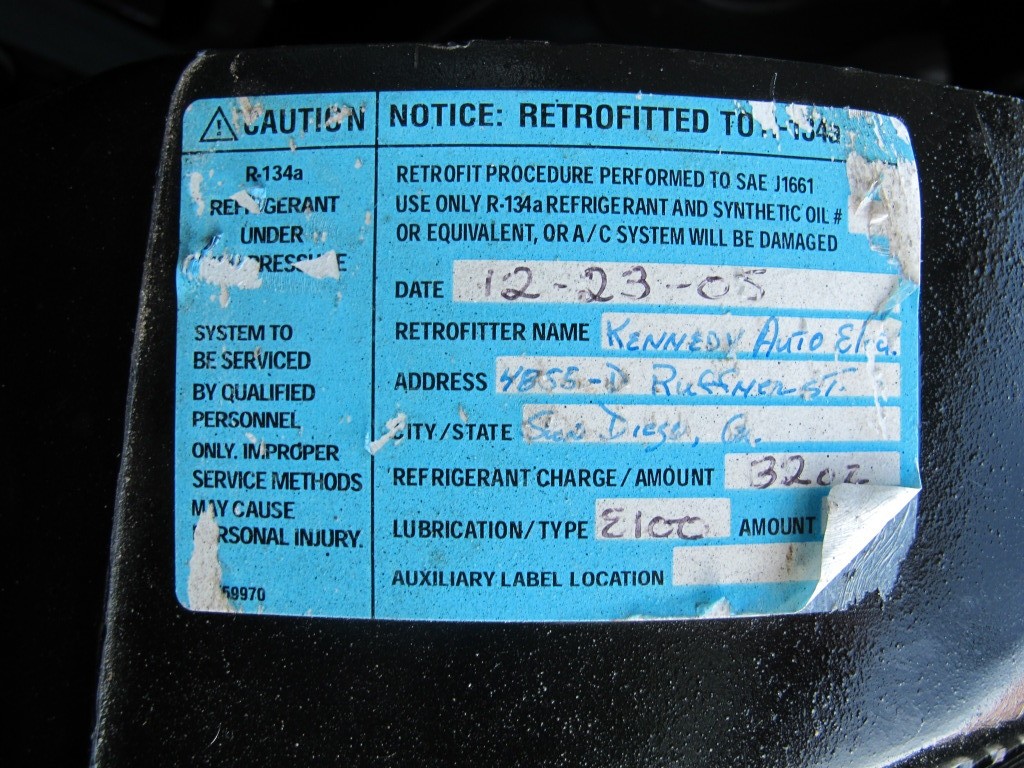 CAUTION
R-134a
REFRIGERANT
UNDER
PRESSURE
SYSTEM TO
BE SERVICED
BY QUALIFIED
PERSONNEL
ONLY. IMPROPER
SERVICE METHODS
MAY CAUSE
PERSONAL INJURY.
59970
NOTICE: RETROFITTED TO R-134a
RETROFIT PROCEDURE PERFORMED TO SAE J1661
USE ONLY R-134a REFRIGERANT AND SYNTHETIC OIL #
OR EQUIVALENT, OR A/C SYSTEM WILL BE DAMAGED
DATE 12-23-05
RETROFITTER NAME KENNEDY AUTO Elec.
ADDRESS 4855-D RUFFNER ST.
CITY/STATE San Diego, Ca.
REFRIGERANT CHARGE/AMOUNT 32oz
LUBRICATION/TYPE E100 AMOUNT
AUXILIARY LABEL LOCATION